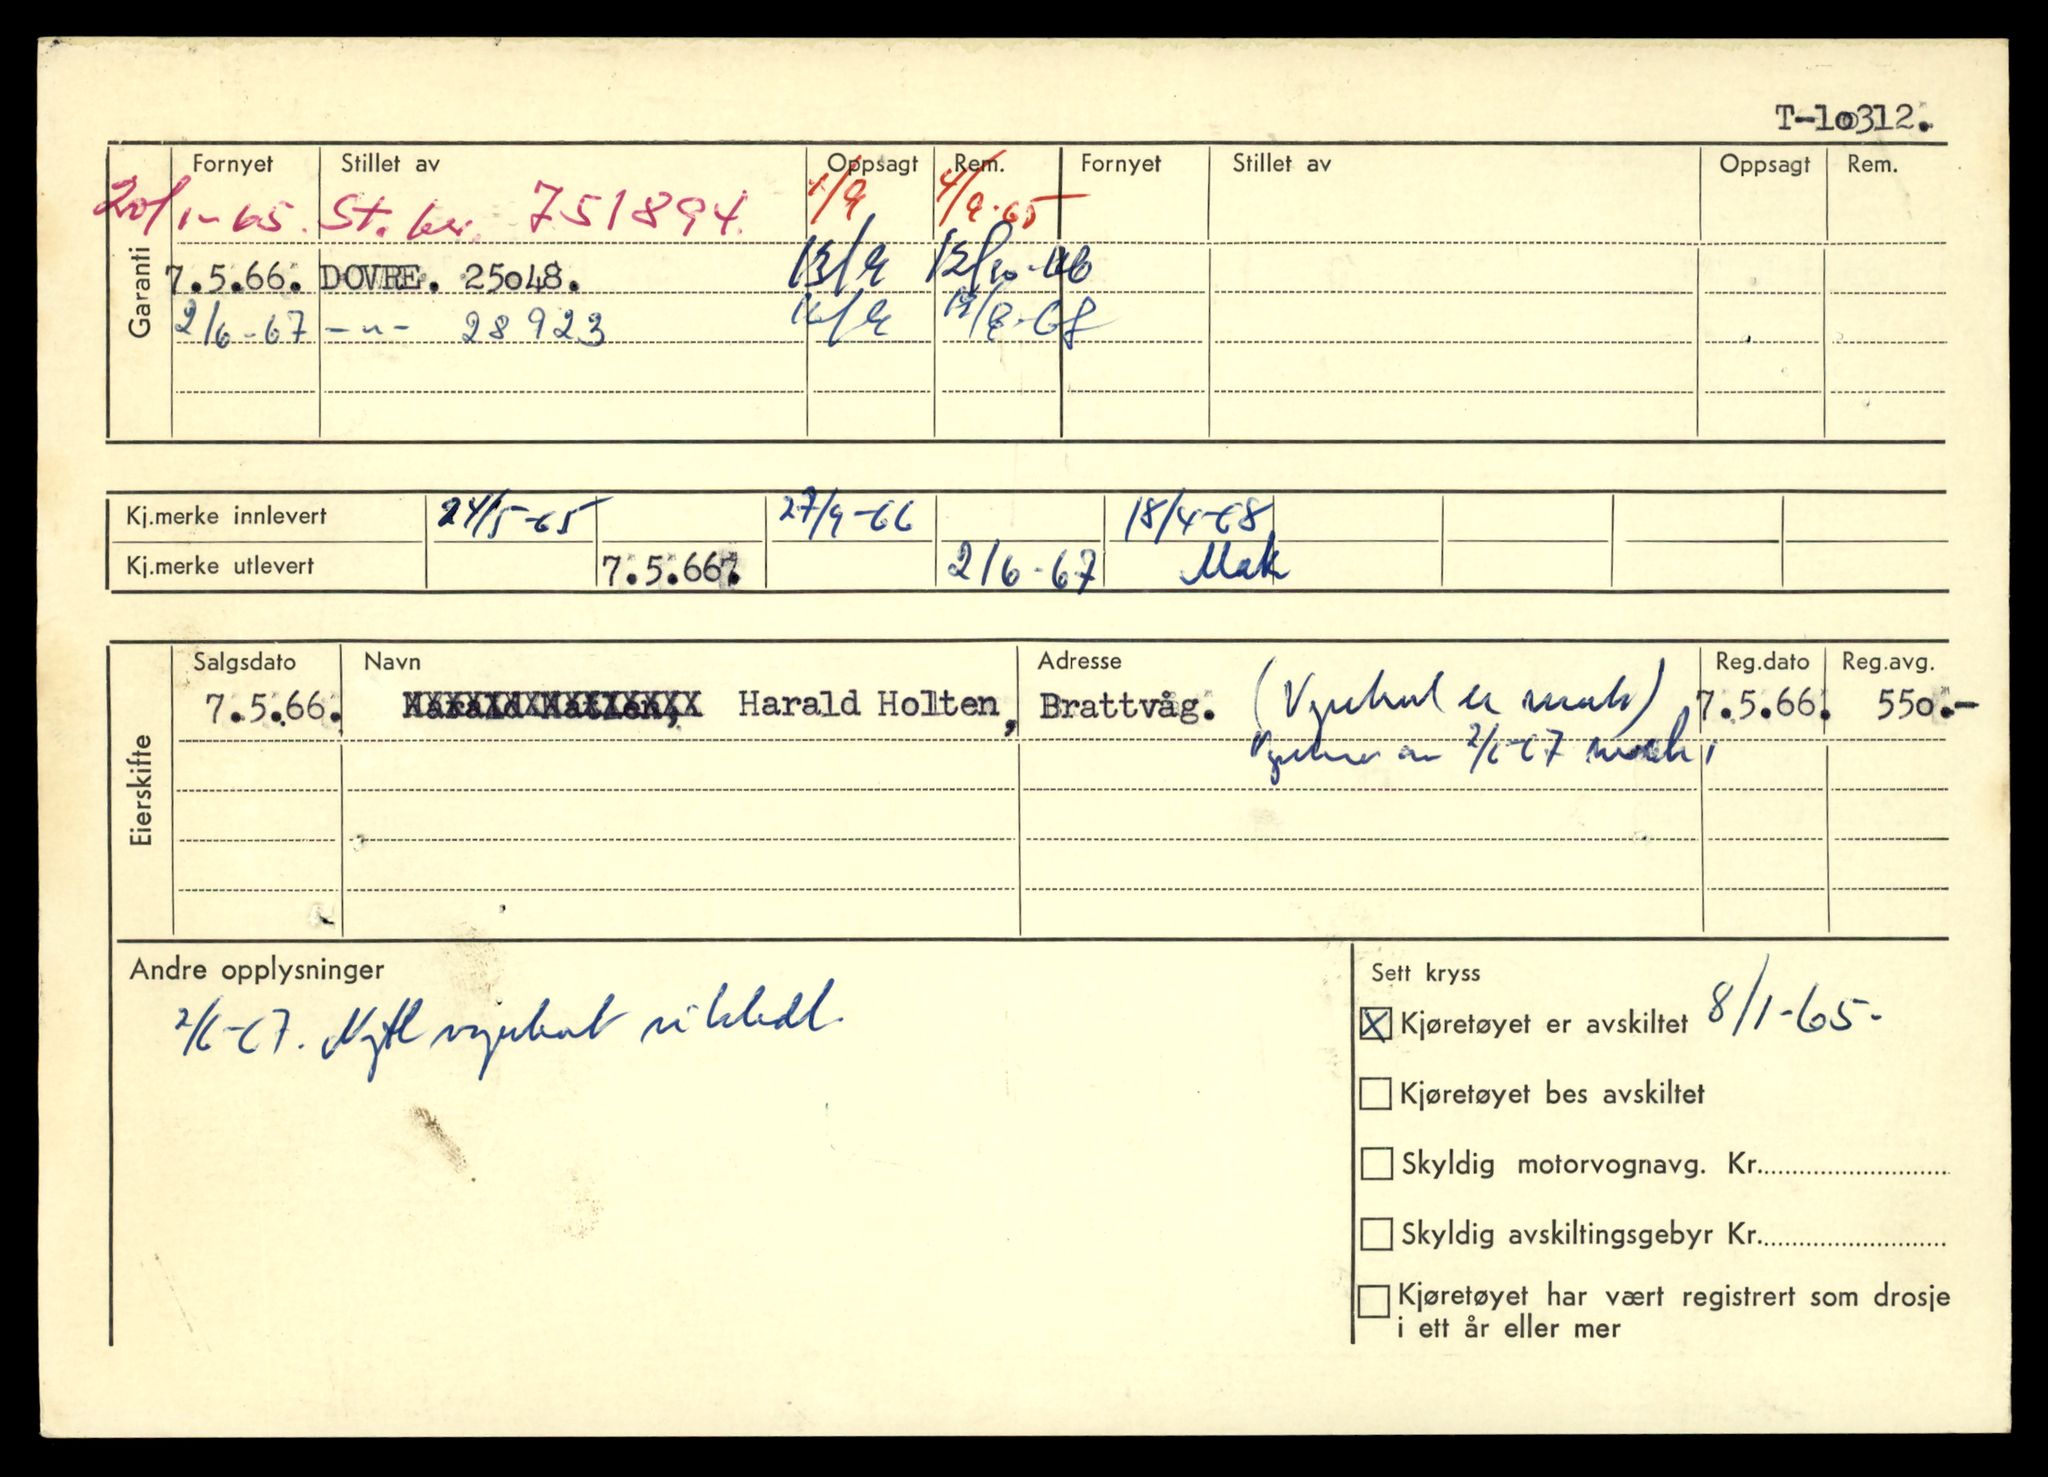 T-10312.
Garanti
Fornyet Stillet av Oppsagt Rem. Fornyet Stillet av Oppsagt Rem.
20/1-65. St. 751894. 4/9-65
7.5.66. DOVRE. 25048. 13/9
2/6-67 -"- 28923
Kj.merke innlevert 24/5-65 27/9-66 18/4-68
Kj.merke utlevert 7.5.667. 2/6-67 Mak
Eierskifte
Salgsdato Navn Adresse Reg.dato Reg.avg.
7.5.66. Harald Holten, Brattvåg. (Vognkort er mak) 7.5.66. 550.-
2/6-67 mak.
Andre opplysninger
2/6-67. Nytt vognkort utstedt.
Sett kryss
X Kjøretøyet er avskiltet 8/1-65-
Kjøretøyet bes avskiltet
Skyldig motorvognavg. Kr..........
Skyldig avskiltingsgebyr Kr..........
Kjøretøyet har vært registrert som drosje
i ett år eller mer